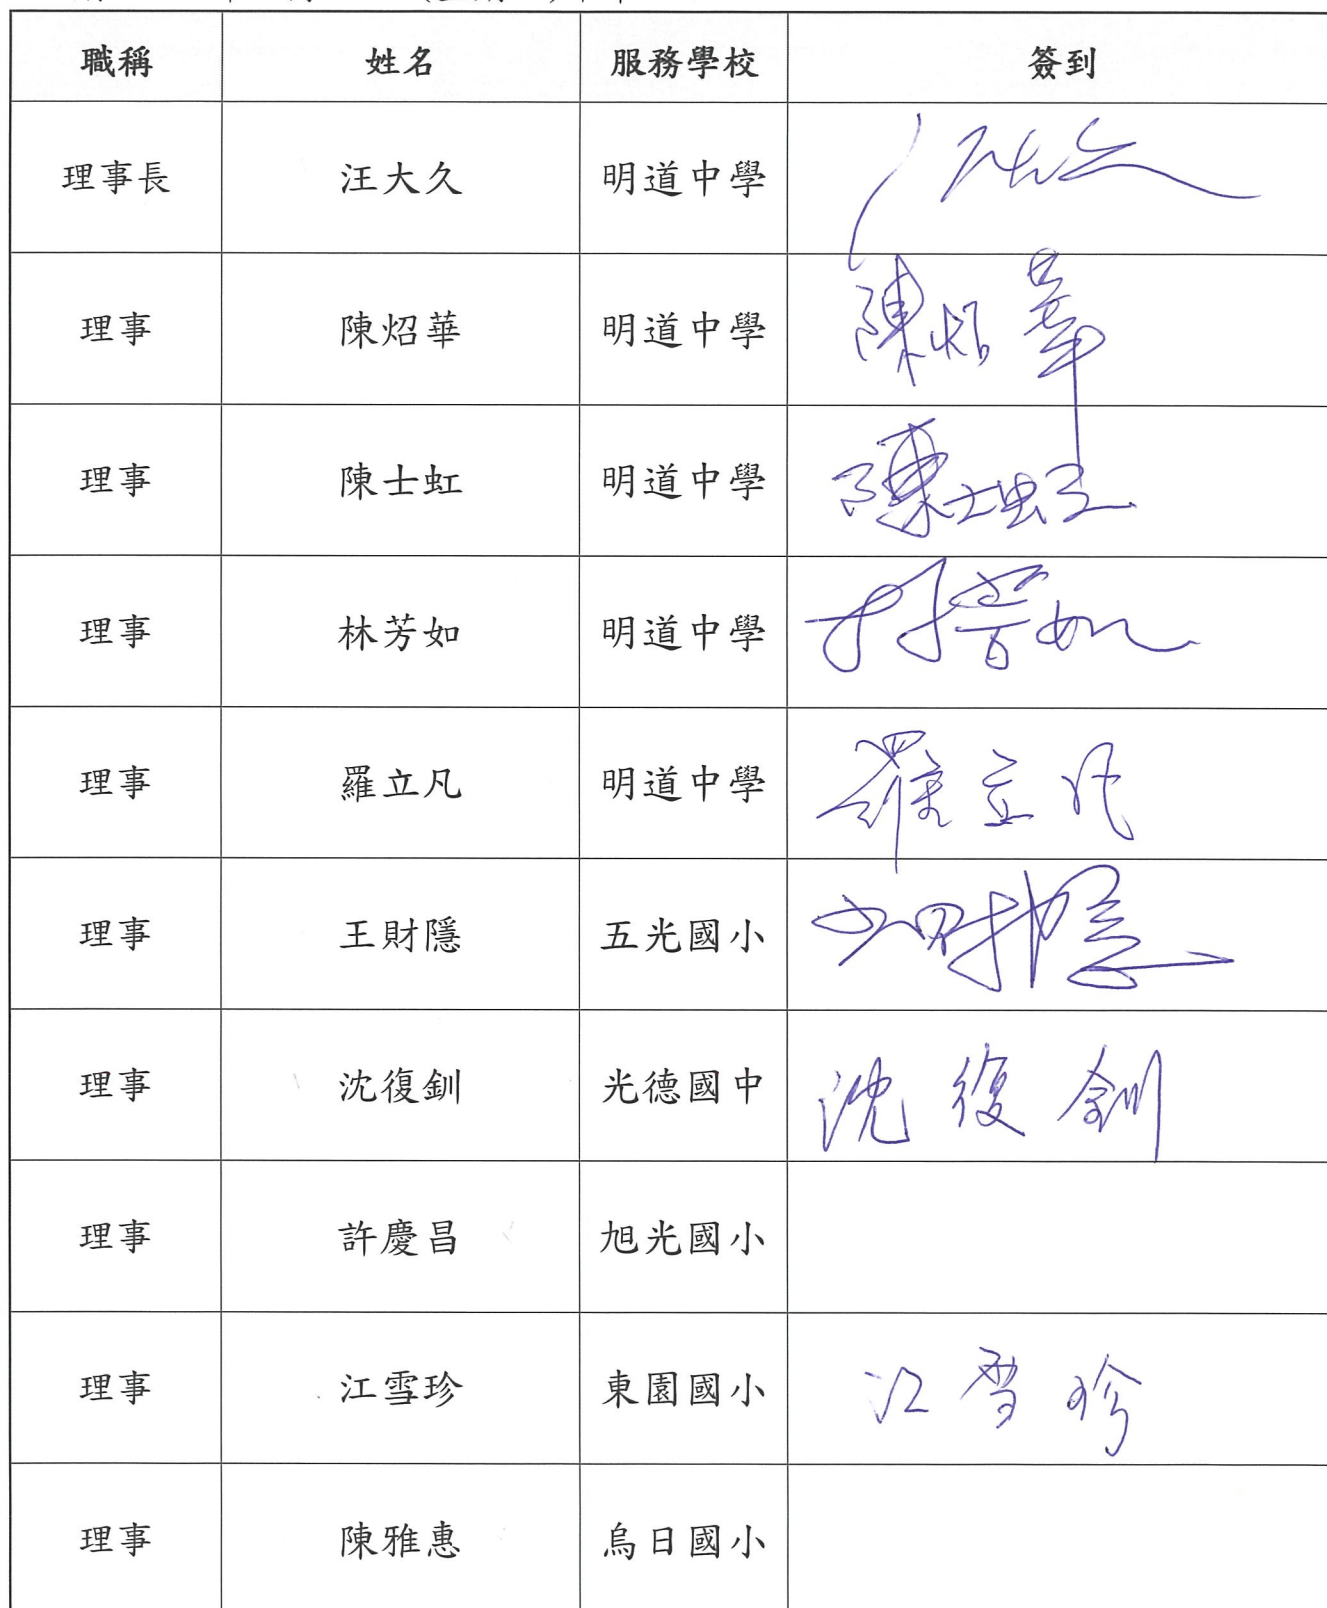 職稱 姓名 服務學校 簽到
理事長 汪大久 明道中學
理事 陳炤華 明道中學 陳炤華
理事 陳士虹 明道中學 陳士虹
理事 林芳如 明道中學
理事 羅立凡 明道中學 羅立凡
理事 王財隱 五光國小
理事 沈復釧 光德國中 沈復釧
理事 許慶昌 旭光國小
理事 江雪珍 東園國小 江雪珍
理事 陳雅惠 烏日國小